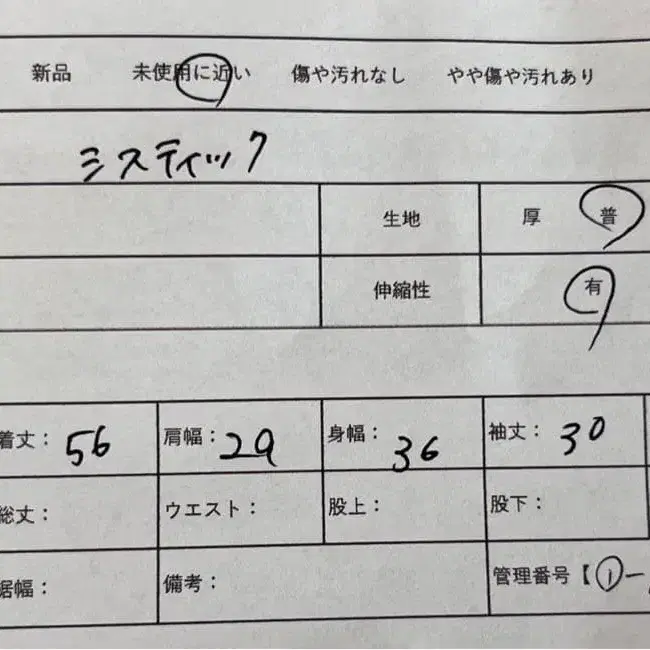 新品 未使用に近い 傷や汚れなし やや傷や汚れあり
ミスティック
生地 厚 普
伸縮性 有
着丈： 56 肩幅： 29 身幅： 36 袖丈： 30
総丈： ウエスト： 股上： 股下：
裾幅： 備考： 管理番号【①ー